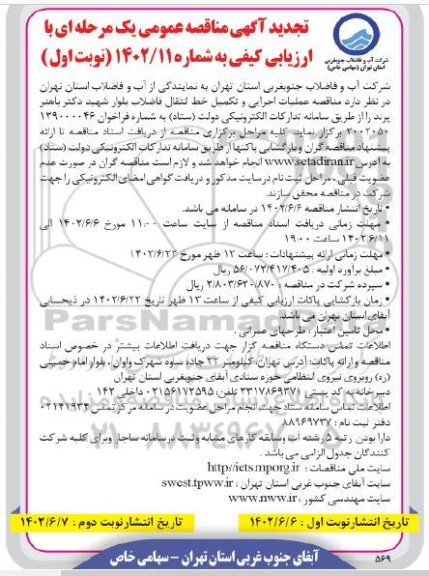 تجدید آگهی مناقصه عمومی یک مرحله ای با
ارزیابی کیفی به شماره ۱۴۰۲/۱۱ (نوبت اول)
شرکت آب و فاضلاب جنوبغربی
استان تهران (سهامی خاص)
شرکت آب و فاضلاب جنوبغربی استان تهران به نمایندگی از آب و فاضلاب استان تهران
در نظر دارد مناقصه عملیات اجرایی و تکمیل خط انتقال فاضلاب بلوار شهید دکتر باهنر
پرند را از طریق سامانه تدارکات الکترونیکی دولت (ستاد) به شماره فراخوان
برگزار نماید. کلیه مراحل برگزاری مناقصه از دریافت اسناد مناقصه تا ارائه
پیشنهاد مناقصه گران و بازگشایی پاکتها از طریق سامانه تدارکات الکترونیکی دولت (ستاد)
به آدرس www.setadiran.ir انجام خواهد شد و لازم است مناقصه گران در صورت عدم
عضویت قبلی، مراحل ثبت نام در سایت مذکور و دریافت گواهی امضای الکترونیکی را جهت
شرکت در مناقصه محقق سازند.
• تاریخ انتشار مناقصه ۱۴۰۲/۶/۶ در سامانه می باشد.
• مهلت زمانی دریافت اسناد مناقصه از سایت ساعت ۱۱:۰۰ مورخ ۱۴۰۲/۶/۶ الی
۱۴۰۲/۶/۱۱ ساعت ۱۹:۰۰
• مهلت زمانی ارائه پیشنهادات : ساعت ۱۲ ظهر مورخ ۱۴۰۲/۶/۲۲
• مبلغ برآورد اولیه : ۵۶/۰۷۲/۴۱۷/۴۰۵ ریال
• سپرده شرکت در مناقصه : ۲/۸۰۳/۶۲۰/۸۷۰ ریال
• زمان بازگشایی پاکات ارزیابی کیفی از ساعت ۱۳ ظهر تاریخ ۱۴۰۲/۶/۲۲ در ذیحسابی
آبفای استان تهران می باشد.
• محل تامین اعتبار : طرحهای عمرانی .
اطلاعات تماس دستگاه مناقصه گزار جهت دریافت اطلاعات بیشتر در خصوص اسناد
مناقصه و ارائه پاکات: آدرس تهران، کیلومتر ۲۲ جاده ساوه شهرک واوان ، بلوار امام خمینی
(ره) روبروی نیروی انتظامی حوزه ستادی آبفای جنوبغربی استان تهران
دبیرخانه کد پستی ۳۳۱۷۸۶۹۳۷۱ تلفن: ۰۲۱۵۶۱۷۲۵۹۵ داخلی ۱۴۲
اطلاعات تماس سامانه ستاد جهت انجام مراحل عضویت در سامانه مرکز تماس
دفتر ثبت نام : ۸۸۹۶۹۷۳۷
دارا بودن رتبه ۵ رشته آب وسابقه کارهای مشابه وثبت درسامانه ساجار وبرای کلیه شرکت
کنندگان جدول الزامی می باشد .
سایت ملی مناقصات : http://iets.mporg.ir
سایت آبفای جنوب غربی استان تهران : swest.tpww.ir
سایت مهندسی کشور : www.nww.ir
تاریخ انتشار نوبت اول : ۱۴۰۲/۶/۶
تاریخ انتشار نوبت دوم : ۱۴۰۲/۶/۷
۵۶۹
آبفای جنوب غربی استان تهران – سهامی خاص